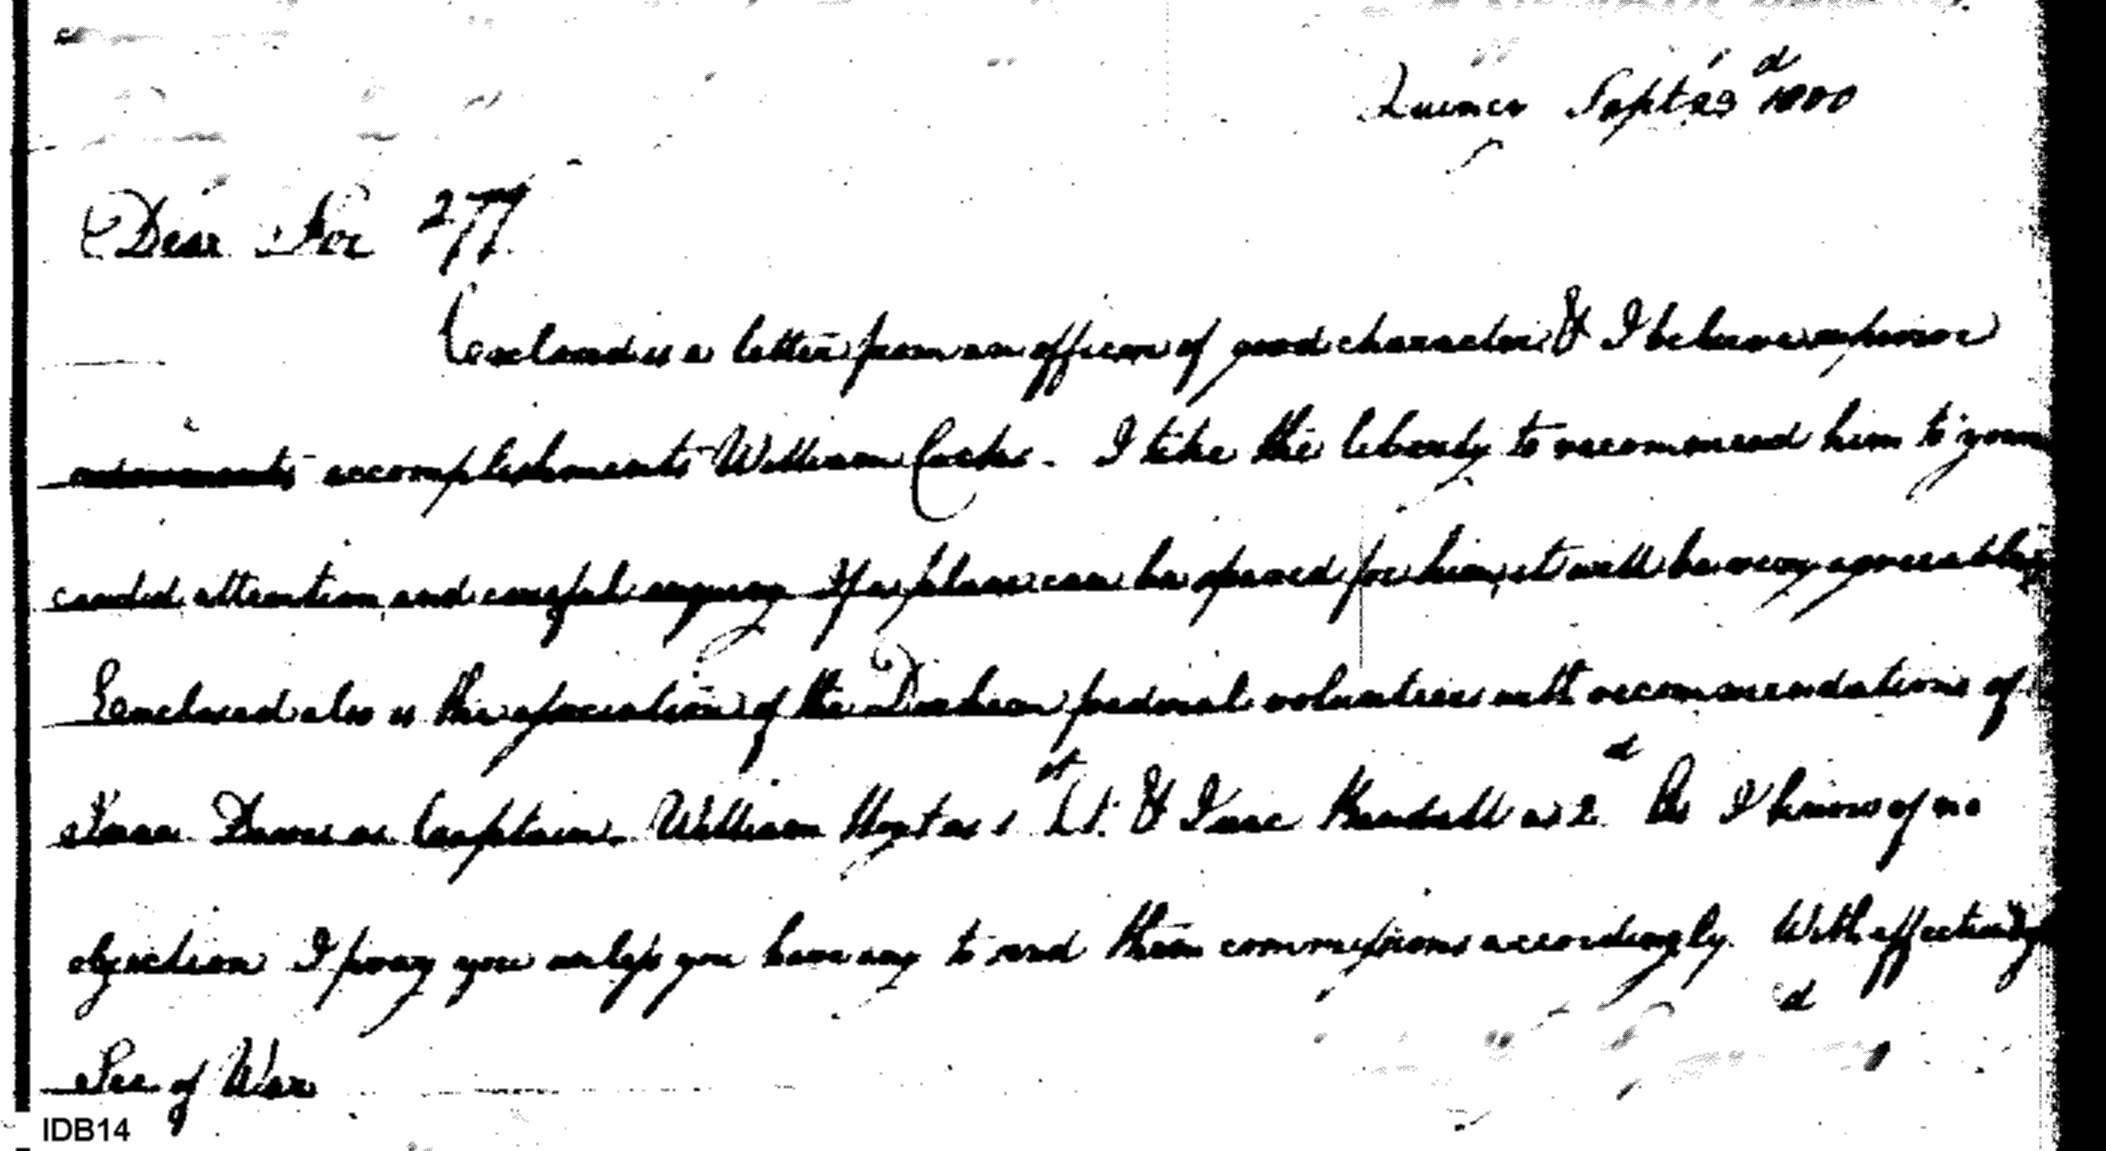 Quincy Sept 23d 1800
Dear Sir 277
Enclosed is a letter from an officer of good character & I believe superior
accomplishments William Cocks. I take the liberty to recommend him to your
candid attention and careful enquiry If a place can be spared for him, it will be very agreeable
Enclosed also is the association of the Durham federal volunteers with recommendations of
as Captain. William Hoyt as 1st Lt. & Isaac Kendall as 2d As I know of no
objection I pray you unless you have any to send them commissions accordingly. With affection
Sec of War
IDB14